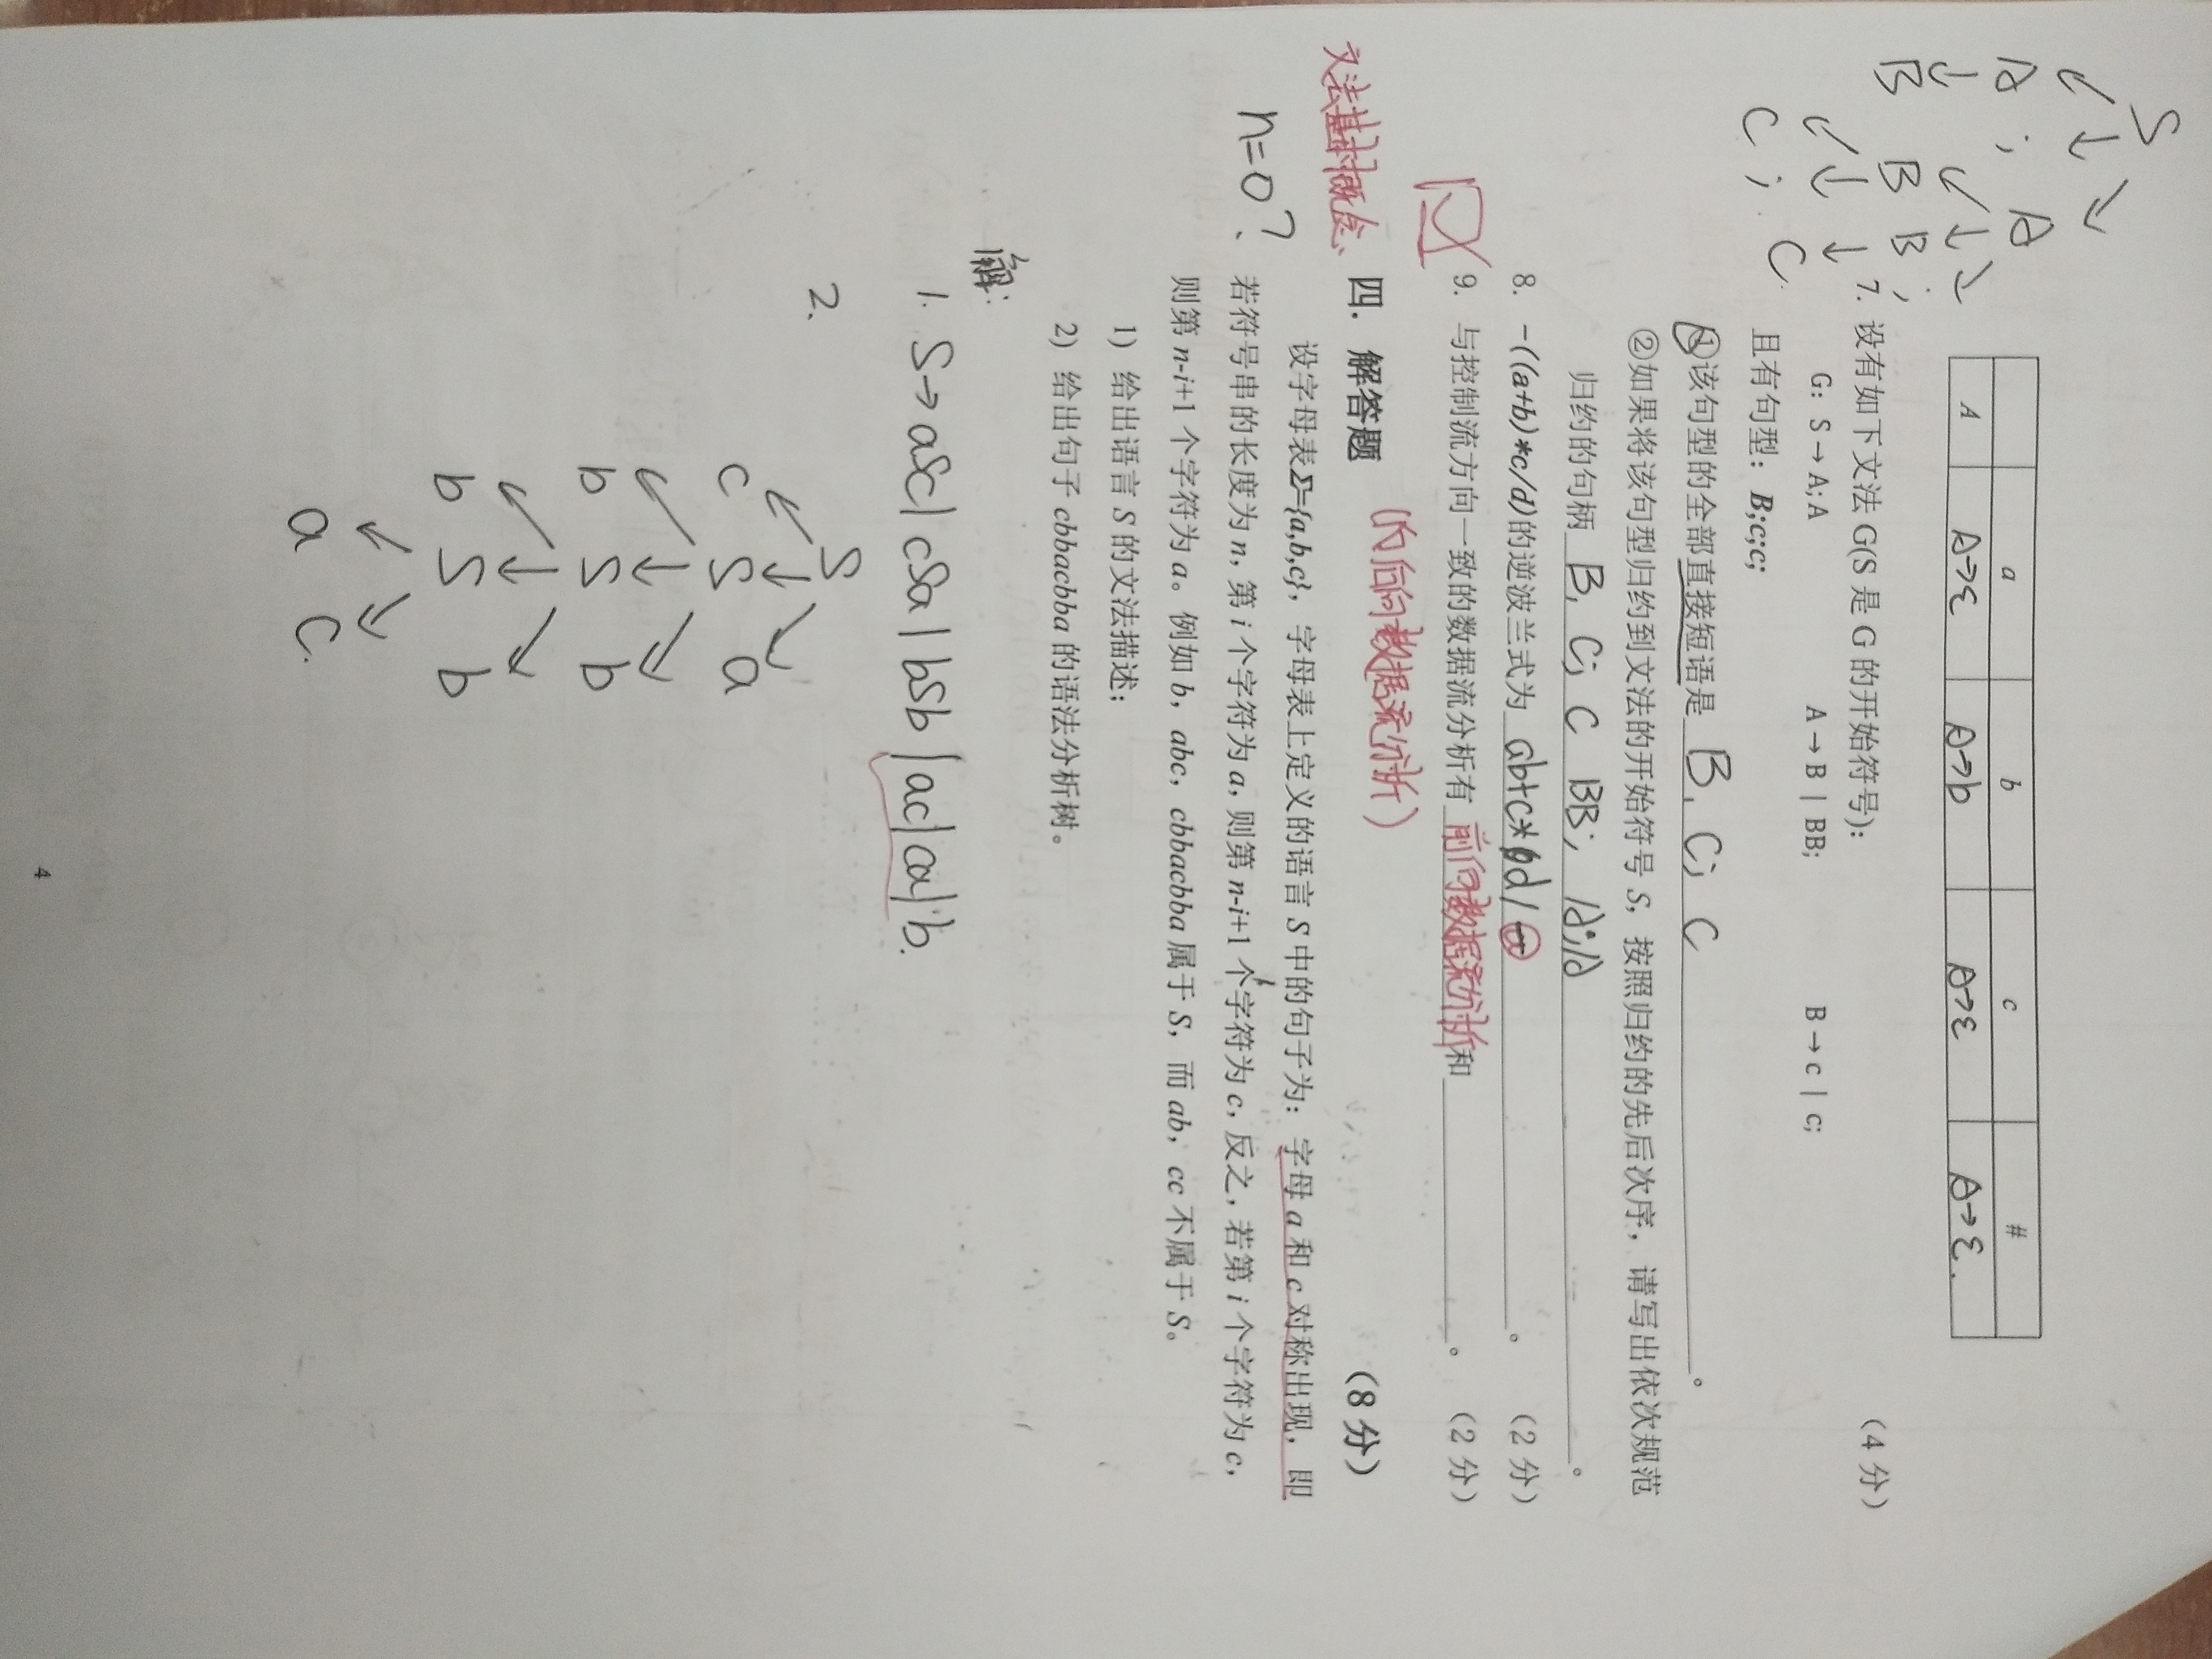 S
A ; A
B B B ;
C ; C
a b c #
A A→ε A→b A→ε A→ε.
7. 设有如下文法 G(S 是 G 的开始符号)： （4 分）
G: S→A;A A→B | BB; B→c | c;
且有句型：B;c;c;
①该句型的全部直接短语是 B, C; C 。
②如果将该句型归约到文法的开始符号 S，按照归约的先后次序，请写出依次规范
归约的句柄 B, C; C BB; A;A 。
8. -((a+b)*c/d)的逆波兰式为 ab+c*d/ 。 （2 分）
9. 与控制流方向一致的数据流分析有 前向数据流分析 和 。 （2 分）
(后向数据流分析)
文法基本概念、
四. 解答题 （8 分）
设字母表Σ={a,b,c}，字母表上定义的语言 S 中的句子为：字母 a 和 c 对称出现，即
n=0?
若符号串的长度为 n，第 i 个字符为 a，则第 n-i+1 个字符为 c，反之，若第 i 个字符为 c，
则第 n-i+1 个字符为 a。例如 b，abc，cbbacbba 属于 S，而 ab，cc 不属于 S。
1) 给出语言 S 的文法描述；
2) 给出句子 cbbacbba 的语法分析树。
解:
1. S→aSc| cSa| bSb |ac|ca|b.
2.
S
c S a
b S b
b S b
a C.
4